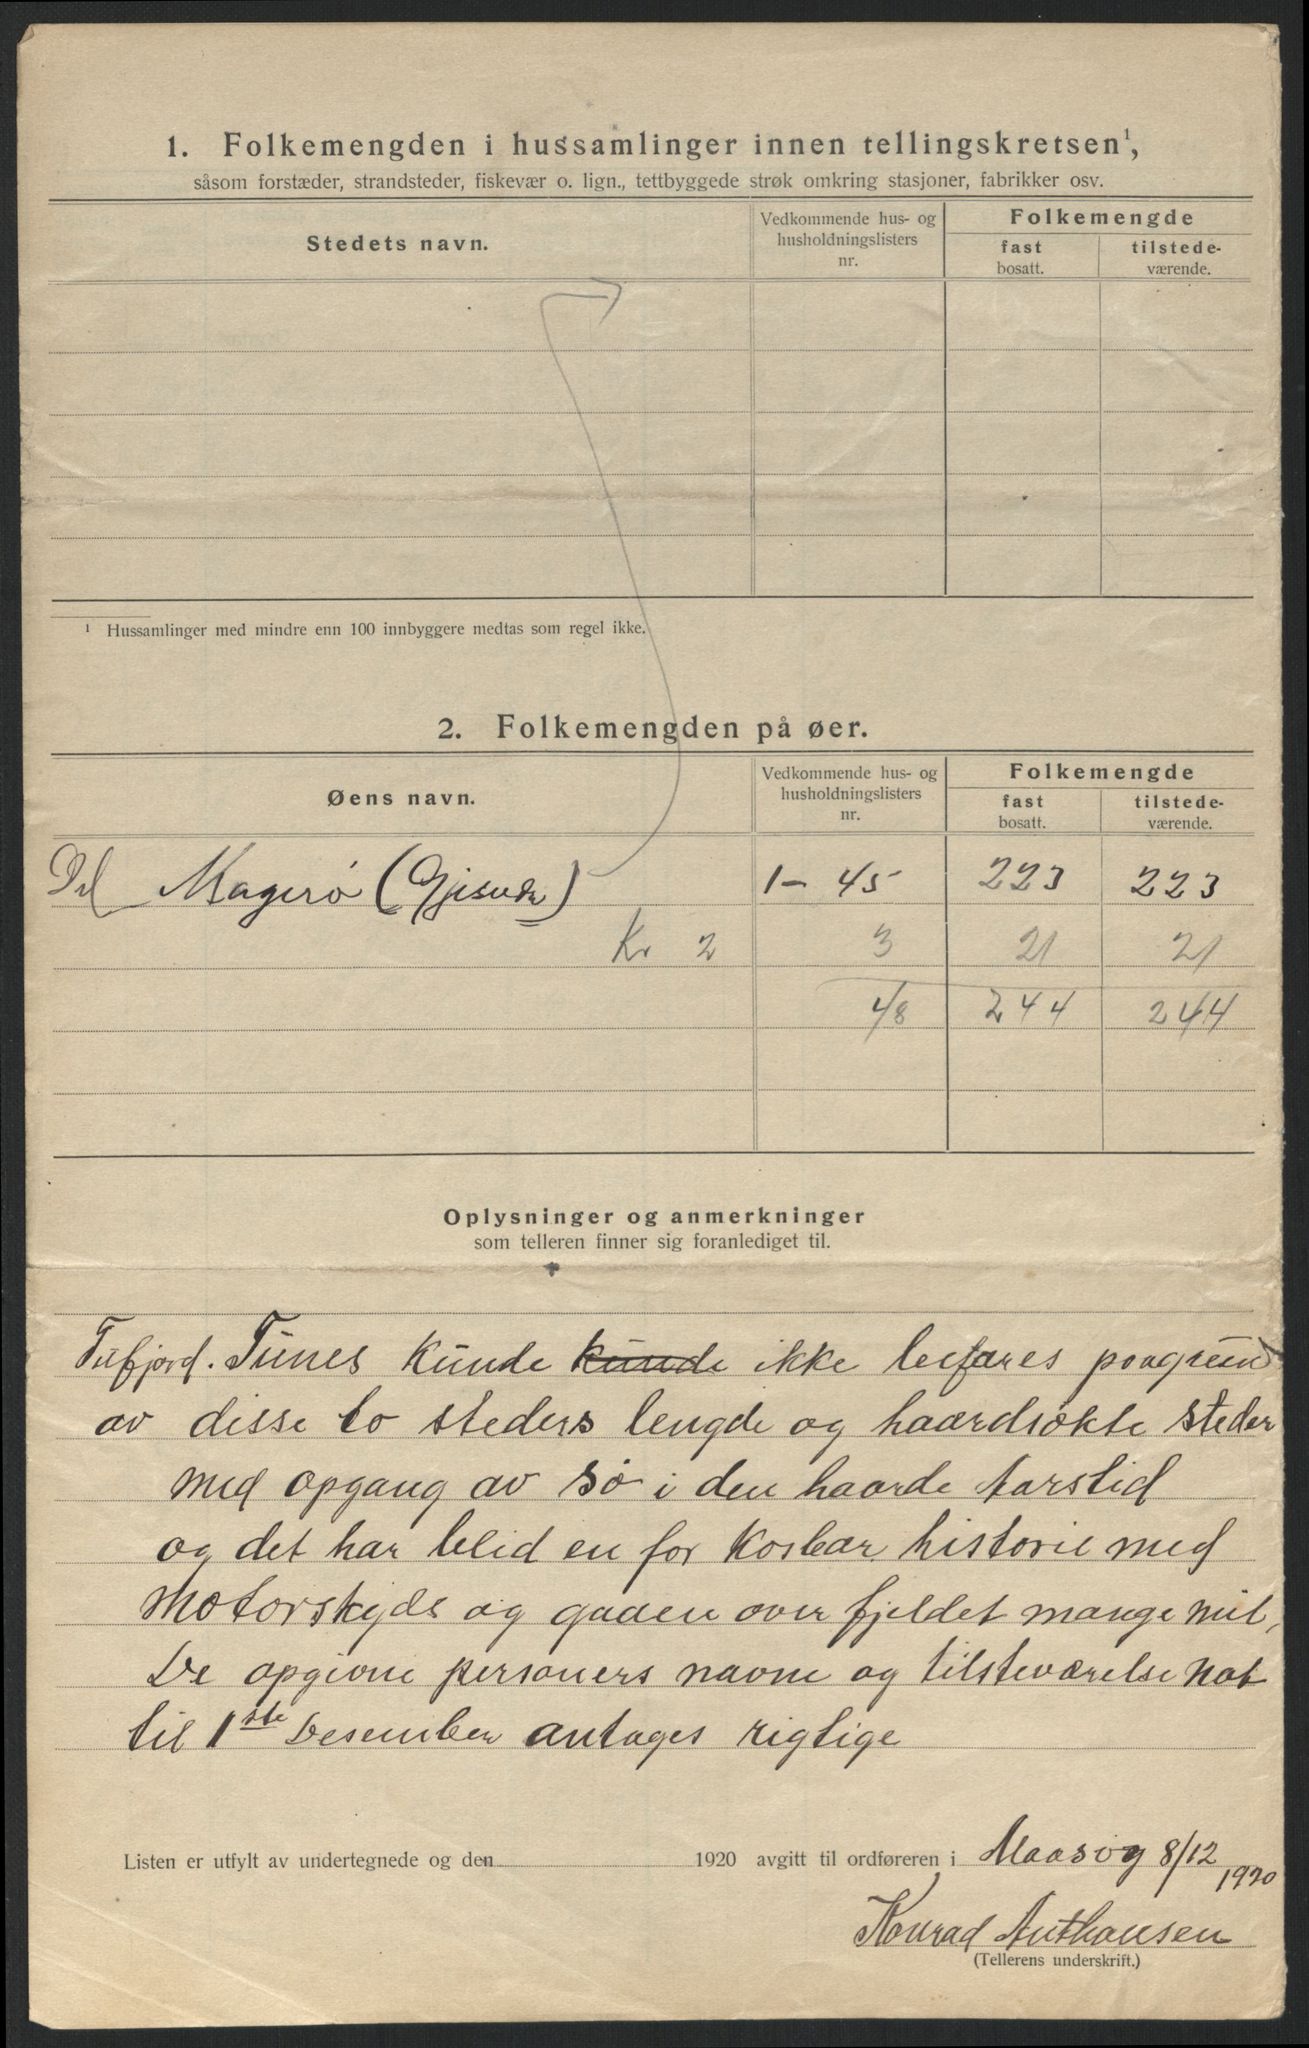 1. Folkemengden i hussamlinger innen tellingskretsen¹,
såsom forstæder, strandsteder, fiskevær o. lign., tettbyggede strøk omkring stasjoner, fabrikker osv.
Stedets navn.
Vedkommende hus- og
husholdningslisters
nr.
Folkemengde
fast
bosatt.
tilstede-
værende.
¹ Hussamlinger med mindre enn 100 innbyggere medtas som regel ikke.
2. Folkemengden på øer.
Øens navn.
Vedkommende hus- og
husholdningslisters
nr.
Folkemengde
fast
bosatt.
tilstede-
værende.
Del Magerø (Gjesvær) 1-45 223 223
Kr 2 3 21 21
48 244 244
Oplysninger og anmerkninger
som telleren finner sig foranlediget til.
Tufjord. Tunes kunde kunde ikke befares paagrund
av disse to steders lengde og haardsøkte steder
med opgang av sø i den haarde Aarstid
og det har blid en for kosbar historie med
Motorskyds og gaaen over fjeldet mange mil,
De opgivne personers navne og tilsteværelse Nat
til 1ste Desember antages rigtige
Listen er utfylt av undertegnede og den 1920 avgitt til ordføreren i Maasøy 8/12 1920
Konrad Anthonsen
(Tellerens underskrift.)